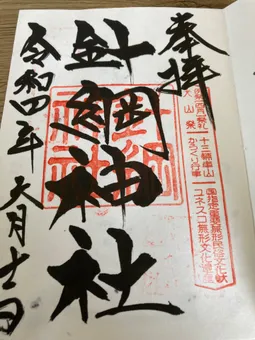 奉拝
十三輌車山
からくり行事
犬山祭
国指定重要無形民俗文化財
ユネスコ無形文化遺産
針綱神社
針綱
神社
令和四年
六月十一日